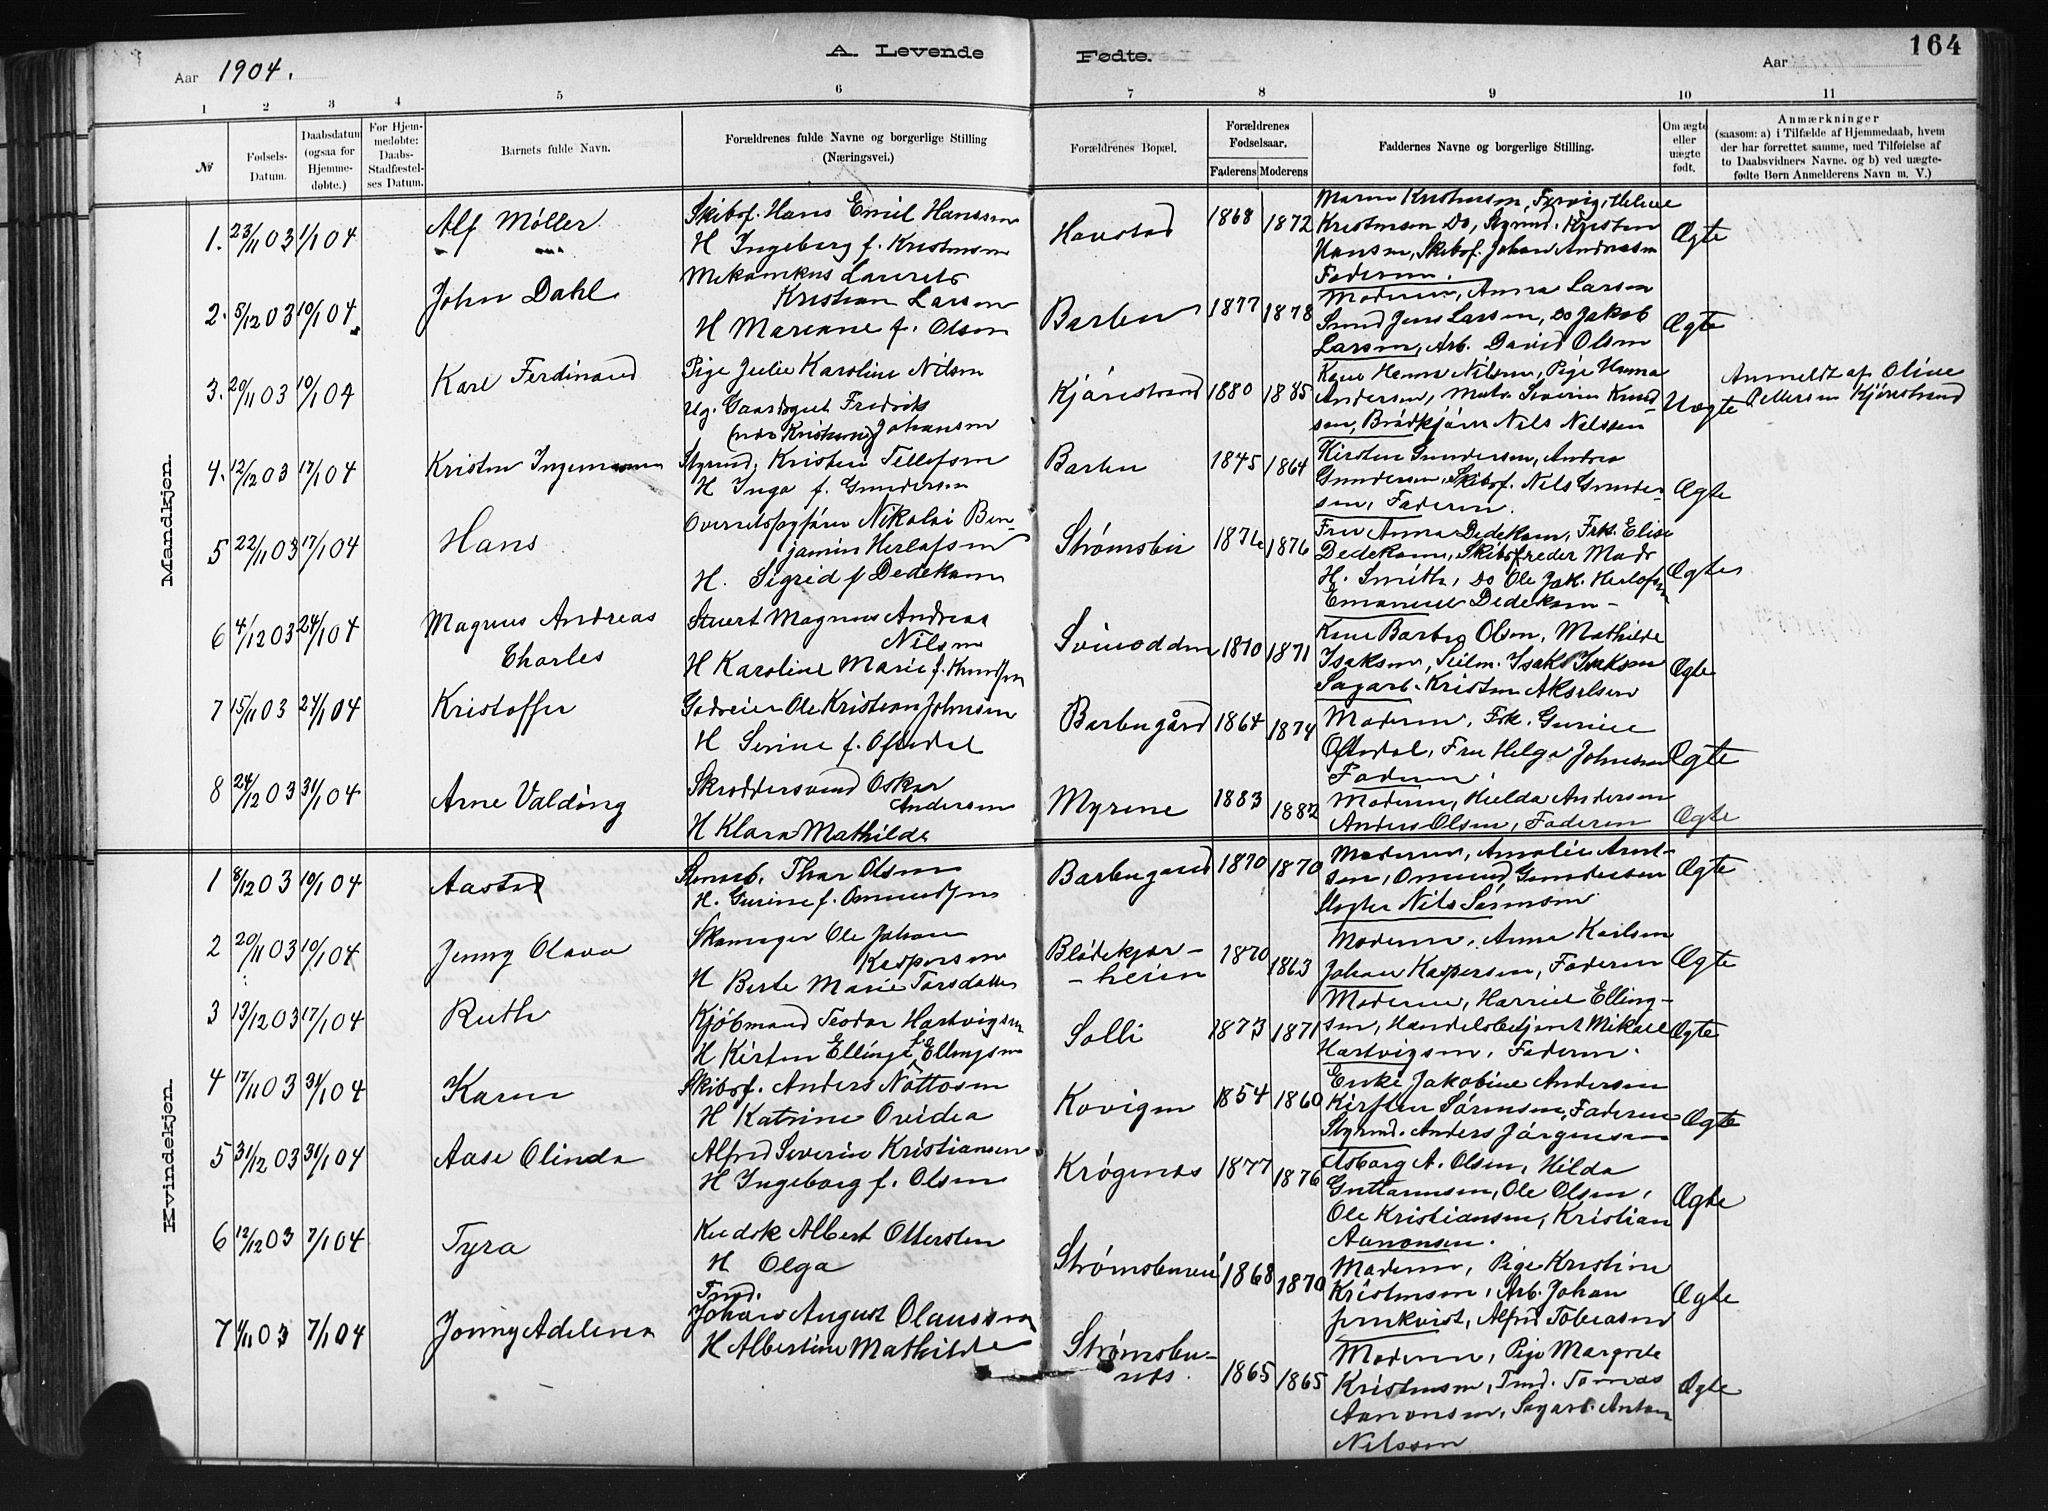 A. Levende Fødte.
164
Aar 1904.
Aar
1 2 3 4 5 6 7 8 9 10 11
№
Fødsels-Datum.
Daabsdatum (ogsaa for Hjemme-døbte.)
For Hjem-medøbte: Daabs-Stadfæstel-ses Datum.
Barnets fulde Navn.
Forældrenes fulde Navne og borgerlige Stilling (Næringsvei.)
Forældrenes Bopæl.
Forældrenes Fødselsaar.
Faderens Moderens
Faddernes Navne og borgerlige Stilling.
Om ægte eller uægte født.
Anmærkninger
(saasom: a) i Tilfælde af Hjemmedaab, hvem der har forrettet samme, med Tilføielse af to Daabsvidners Navne. og b) ved uægte-fødte Børn Anmelderens Navn m. V.)
Mandkjøn.
1. 23/11 03 1/1 04 Alf Möller
Skibsf. Hans Emil Hanssen
H Ingeborg f. Kristensen
Havstad 1868 1872
Maren Kristensen, Helene
Kristensen Do, Styrmd. Kristen
Hansen, Skibsf. Johan Andreasen
Faderen.
Ægte
2. 5/12 03 10/1 04 John Dahl
Mekanikus Laurits
Kristian Larsen
H Mareane f. Olsen
Barbu 1877 1878
Moderen, Anna Larsen
Smed Jens Larsen, Do Jakob
Larsen, Arb. David Olsen
Ægte
3. 20/11 03 10/1 04 Karl Ferdinand
Pige Julie Karoline Nilsen
Ug. Gaardsgut Fredrik
Johansen
Kjörrestrand 1880 1885
Kone Hanna Nilsen, Pige Hanna
Andersen, Matr. Severin Knud-
sen, Brödkjörer Nils Nelssen
Uægte
Anmeldt af Oline
Pettersen Kjörrestrand
4. 12/12 03 17/1 04 Kristen
Styrmd. Kristen Tellefsen
H Inga f. Gundersen
Barbu 1845 1864
Kirsten Gundersen, Andrea
Gundersen, Skibsf. Nils Gunder-
sen, Faderen.
Ægte
5 22/11 03 17/1 04 Hans
Overretssagförer Nikolai Ben-
jamin Herlofsen
H. Sigrid f Dedekam
Strømsbu 1876
Fru Anna Dedekam, Frk. Elise
Dedekam, Skibsreder Mads
H. Smith, Do Ole Jak. Herlofsen
Emanuel Dedekam -
Ægte
6 4/12 03 24/1 04 Magnus Andreas
Charles
Stuert Magnus Andreas
Nilsen
H Karoline Marie f. Knudsen
Svinodden 1870 1871
Kone Barbro Olsen, Mathilde
Isaksen, Seilm. Isak Isaksen
Sagarb. Kristen Akselsen
Ægte
7 15/11 03 24/1 04 Kristoffer
Gadeeier Ole Kristian Johnsen
H Serine f. Ofstedal
Barbugård 1864 1874
Moderen, Frk. Gurine
Oftedal, Fru Helga Johnsen
Faderen.
Ægte
8 24/12 03 31/1 04 Arne Valding
Skræddersvend Oskar
Andersen
H Klara Mathilde
Myrene 1883 1882
Moderen, Hilda Andersen
Anders Olsen, Faderen
Ægte
Kvindekjøn.
1 8/12 03 10/1 04 Aasta
Thor Olsen
H. Gurine f. Omundsen
Barbugaard 1870 1870
Moderen, Amalie Arnt-
sen, Omund Gundersen
Slagter Nils Sörensen
Ægte
2 20/11 03 10/1 04 Jenny Olava
Skomager Ole Johan
Kaspersen
H Berte Marie Torsdatter
Blödekjær-
-heien 1870 1863
Moderen, Anna Karlsen
Johan Kaspersen, Faderen
Ægte
3 13/12 03 17/1 04 Ruth
Kjöbmand Teodor Hartvigsen
H Kirsten Elline f. Ellingsen
Solli 1873 1871
Moderen, Harriet Elling-
sen, Handelsbetjent Mikael
Hartvigsen, Faderen.
Ægte
4 17/11 03 31/1 04 Karen
Skibsf. Anders Nöttosen
H Katrine Ovidea
Kovigen 1854 1860
Enke Jakobine Andersen
Kirsten Sörensen, Faderen
Styrmd. Anders Jörgensen
Ægte
5 31/12 03 31/1 04 Aase Olinda
Alfred Severin Kristiansen
H Ingeborg f. Olsen
Krøgenes 1877 1876
Asborg A. Olsen, Hilda
Guttormsen, Ole Olsen,
Ole Kristiansen, Kristian
Aanonsen.
Ægte
6 12/12 03 7/1 04 Tyra
Albert Ottersten
H Olga
Strømsbuneset 1868 1870
Moderen, Pige Kristine
Kristensen, Arb. Johan
Jernkvist, Alfred Tobiasen
Ægte
7 03 7/1 04 Jonny Adelina
Tmd.
Johan August Olaussen
H Albertine Mathilde
Strømsbu-
nes. 1865 1865
Moderen, Pige Margrete
Kristensen, Tmd. Tomas
Aanonsen, Sagarb. Anton
Nilssen
Ægte